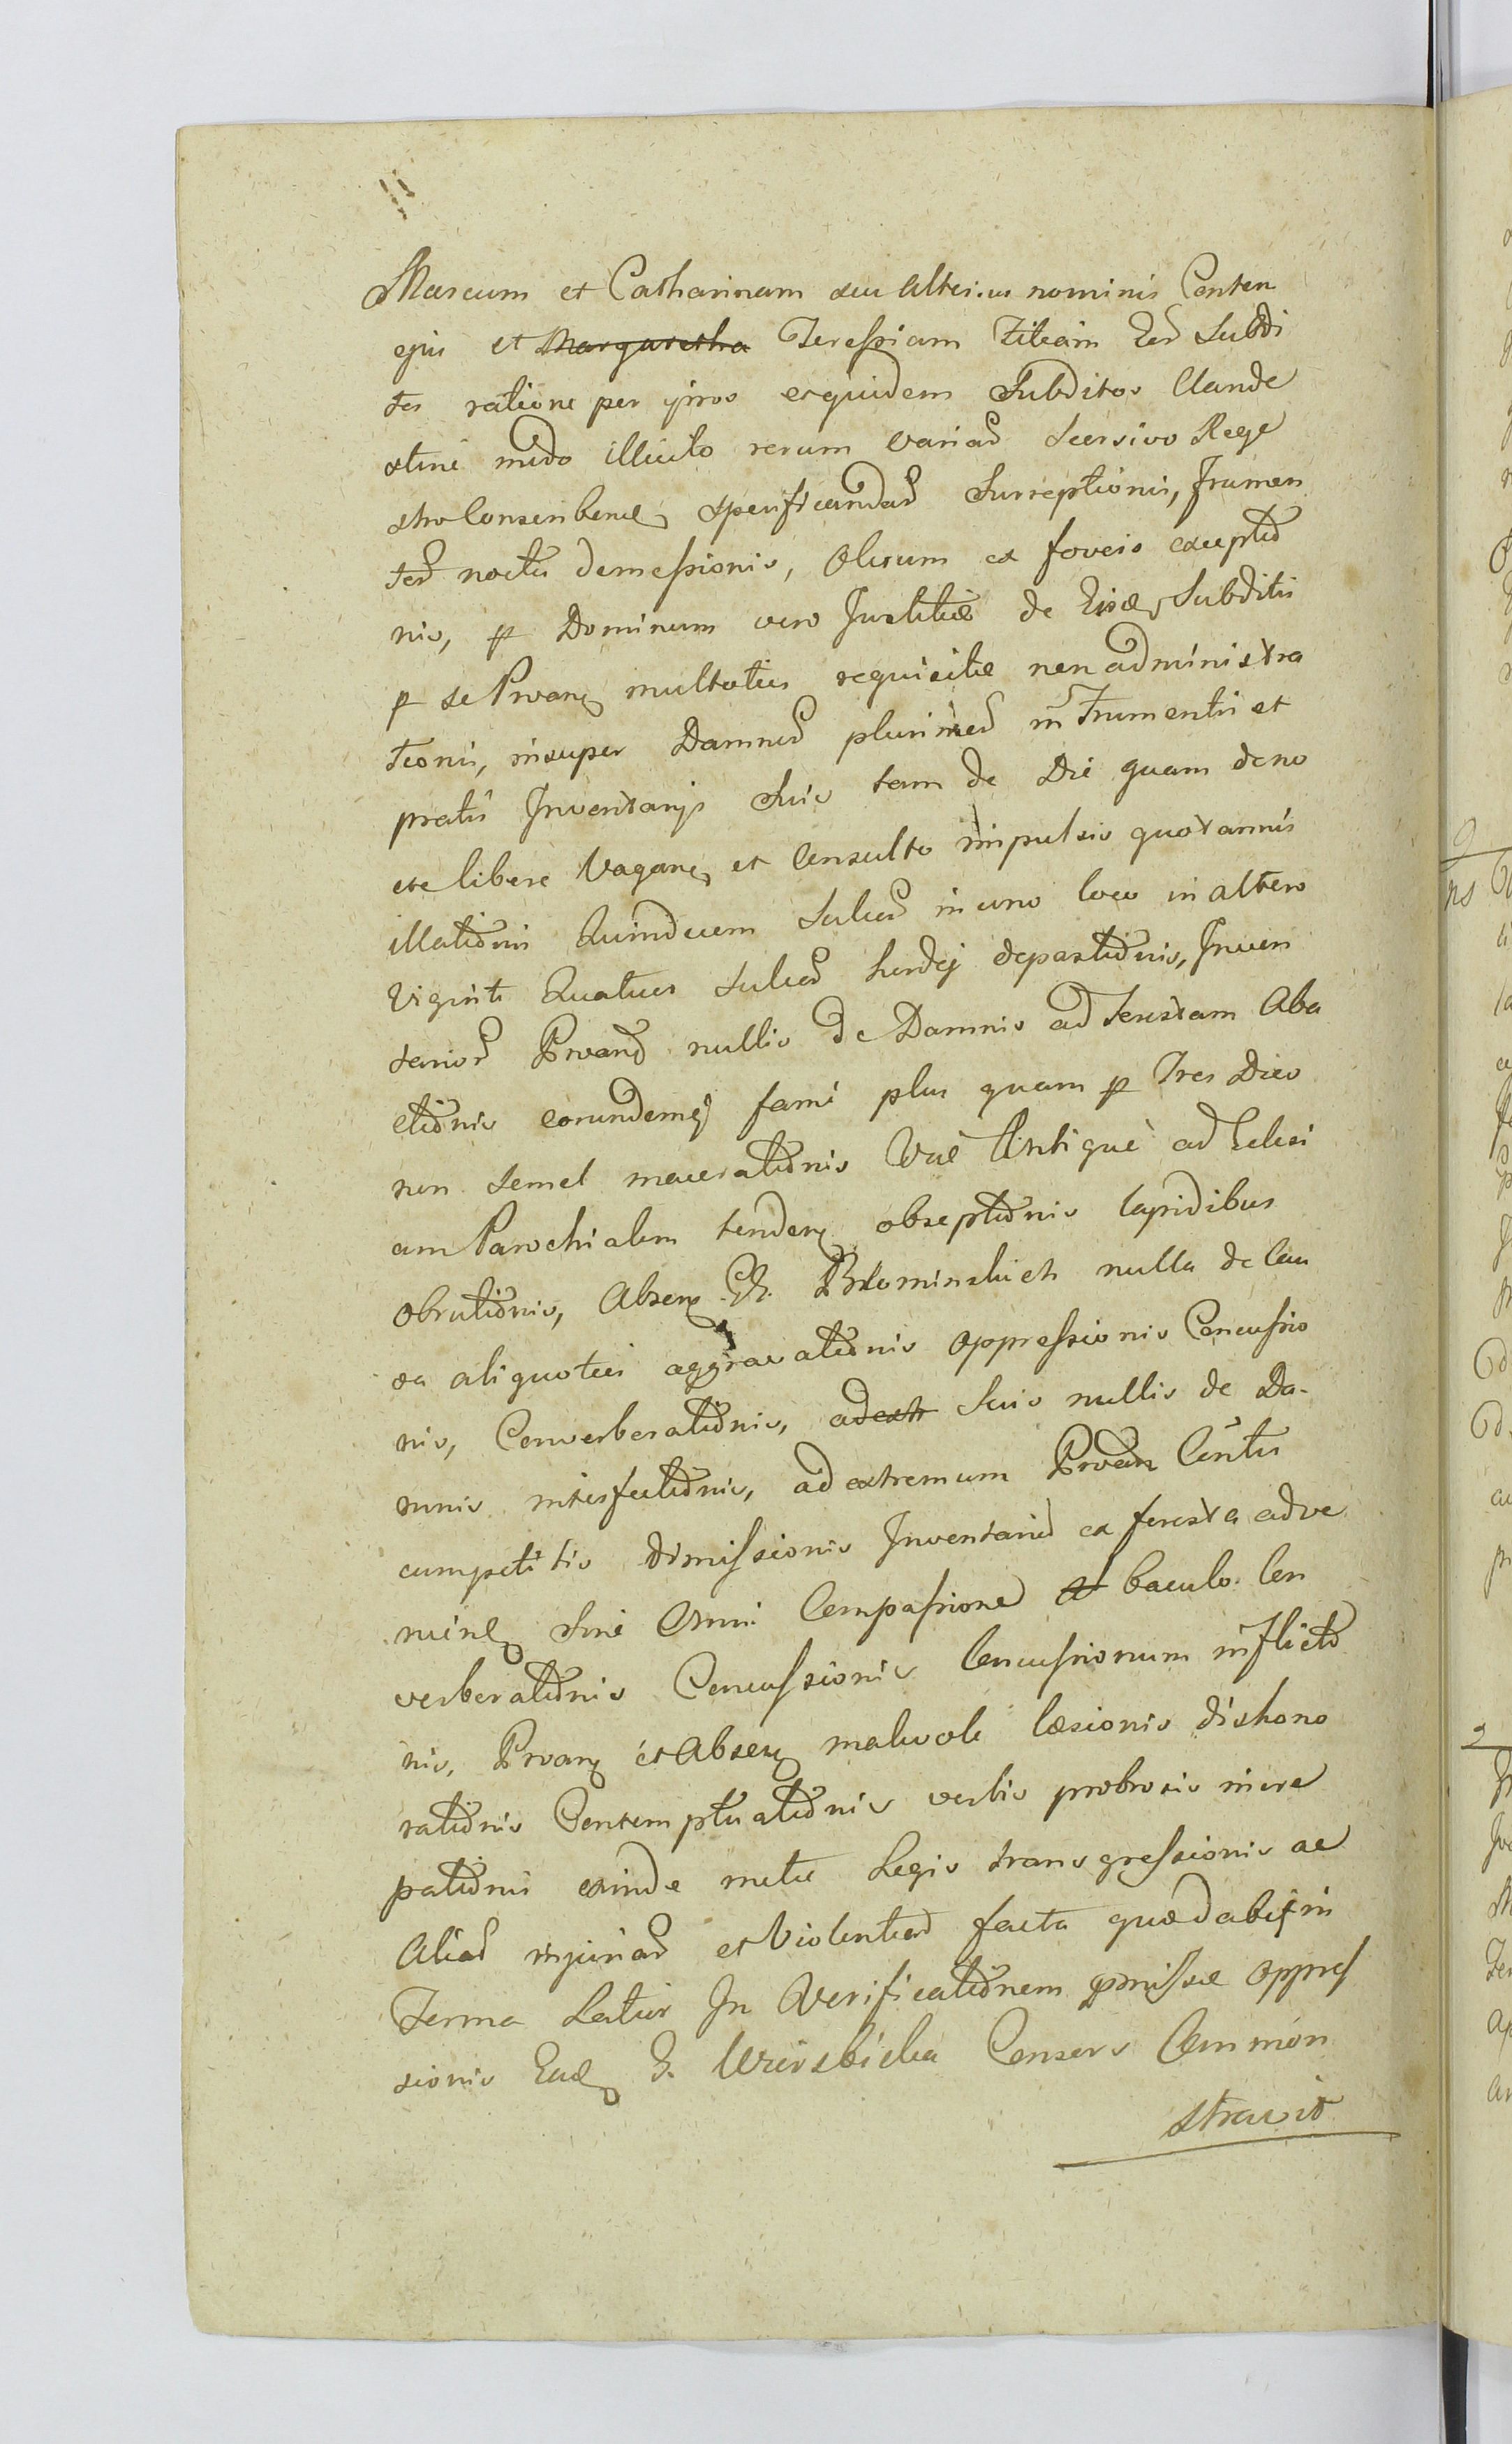 Marcum et Catharinam seu alterius nominis Conten
ejus et Margaretha Teressiam Filiam Eor Subdi
tes ratione per ipsos erquidem Subditos Clande
stine modo illicito rerum variar seorsivo Rege
stro Conscribend specificandar Surreptionis, Frumen
tor noctu demessionis, Olerum ex foveis exceptio
nis, p Dominum vero Justitiæ de Eisd Subditis
p se Proven multoties requisitæ non administra
tionis, insuper Damnor plurimor in Frumentis et
pratis Inventarys Suis tam de Die quam de no
cte libere Vagan et Consulto impulsis quotannis
illationis Quindecem Sulcor in uno loco in altero
Viginti Quatuor Sulcor hordej depastionis, Inven
tarior Provend nullis de Damnis ad Terestam Aba
ctionis eorundemq fame plus quam p Tres Dies
non semel macerationis Viæ Antiquè ad Eclesi
am Parochialem tenden obseptionis lapidibus
obrutionis, Absen G. Blominskich nulla de Cau
sa aliquoties aggravationis oppressionis Concussio
nis, Converberationis, adext Suis nullis de Da-
mnis interfectionis, ad extremum Proven Contus
cumpetitis dimissionis Inventarior ex feresta adve
nien sine Omni Compassione et baculo Con
verberationis Concussionis Concussionum inflictio
nis, Proven et Absen malevole læsionis dishono
rationis Contemptuationis verbis probrosis incre
pationis exinde metu Legis transgressionis ac
Aliar injuriar et Violentiar facta quæ dabij in
Termo Latius In Verificationem præmissæ oppres
sionis Ead G. Wierzbicka Consors Commön
stravit